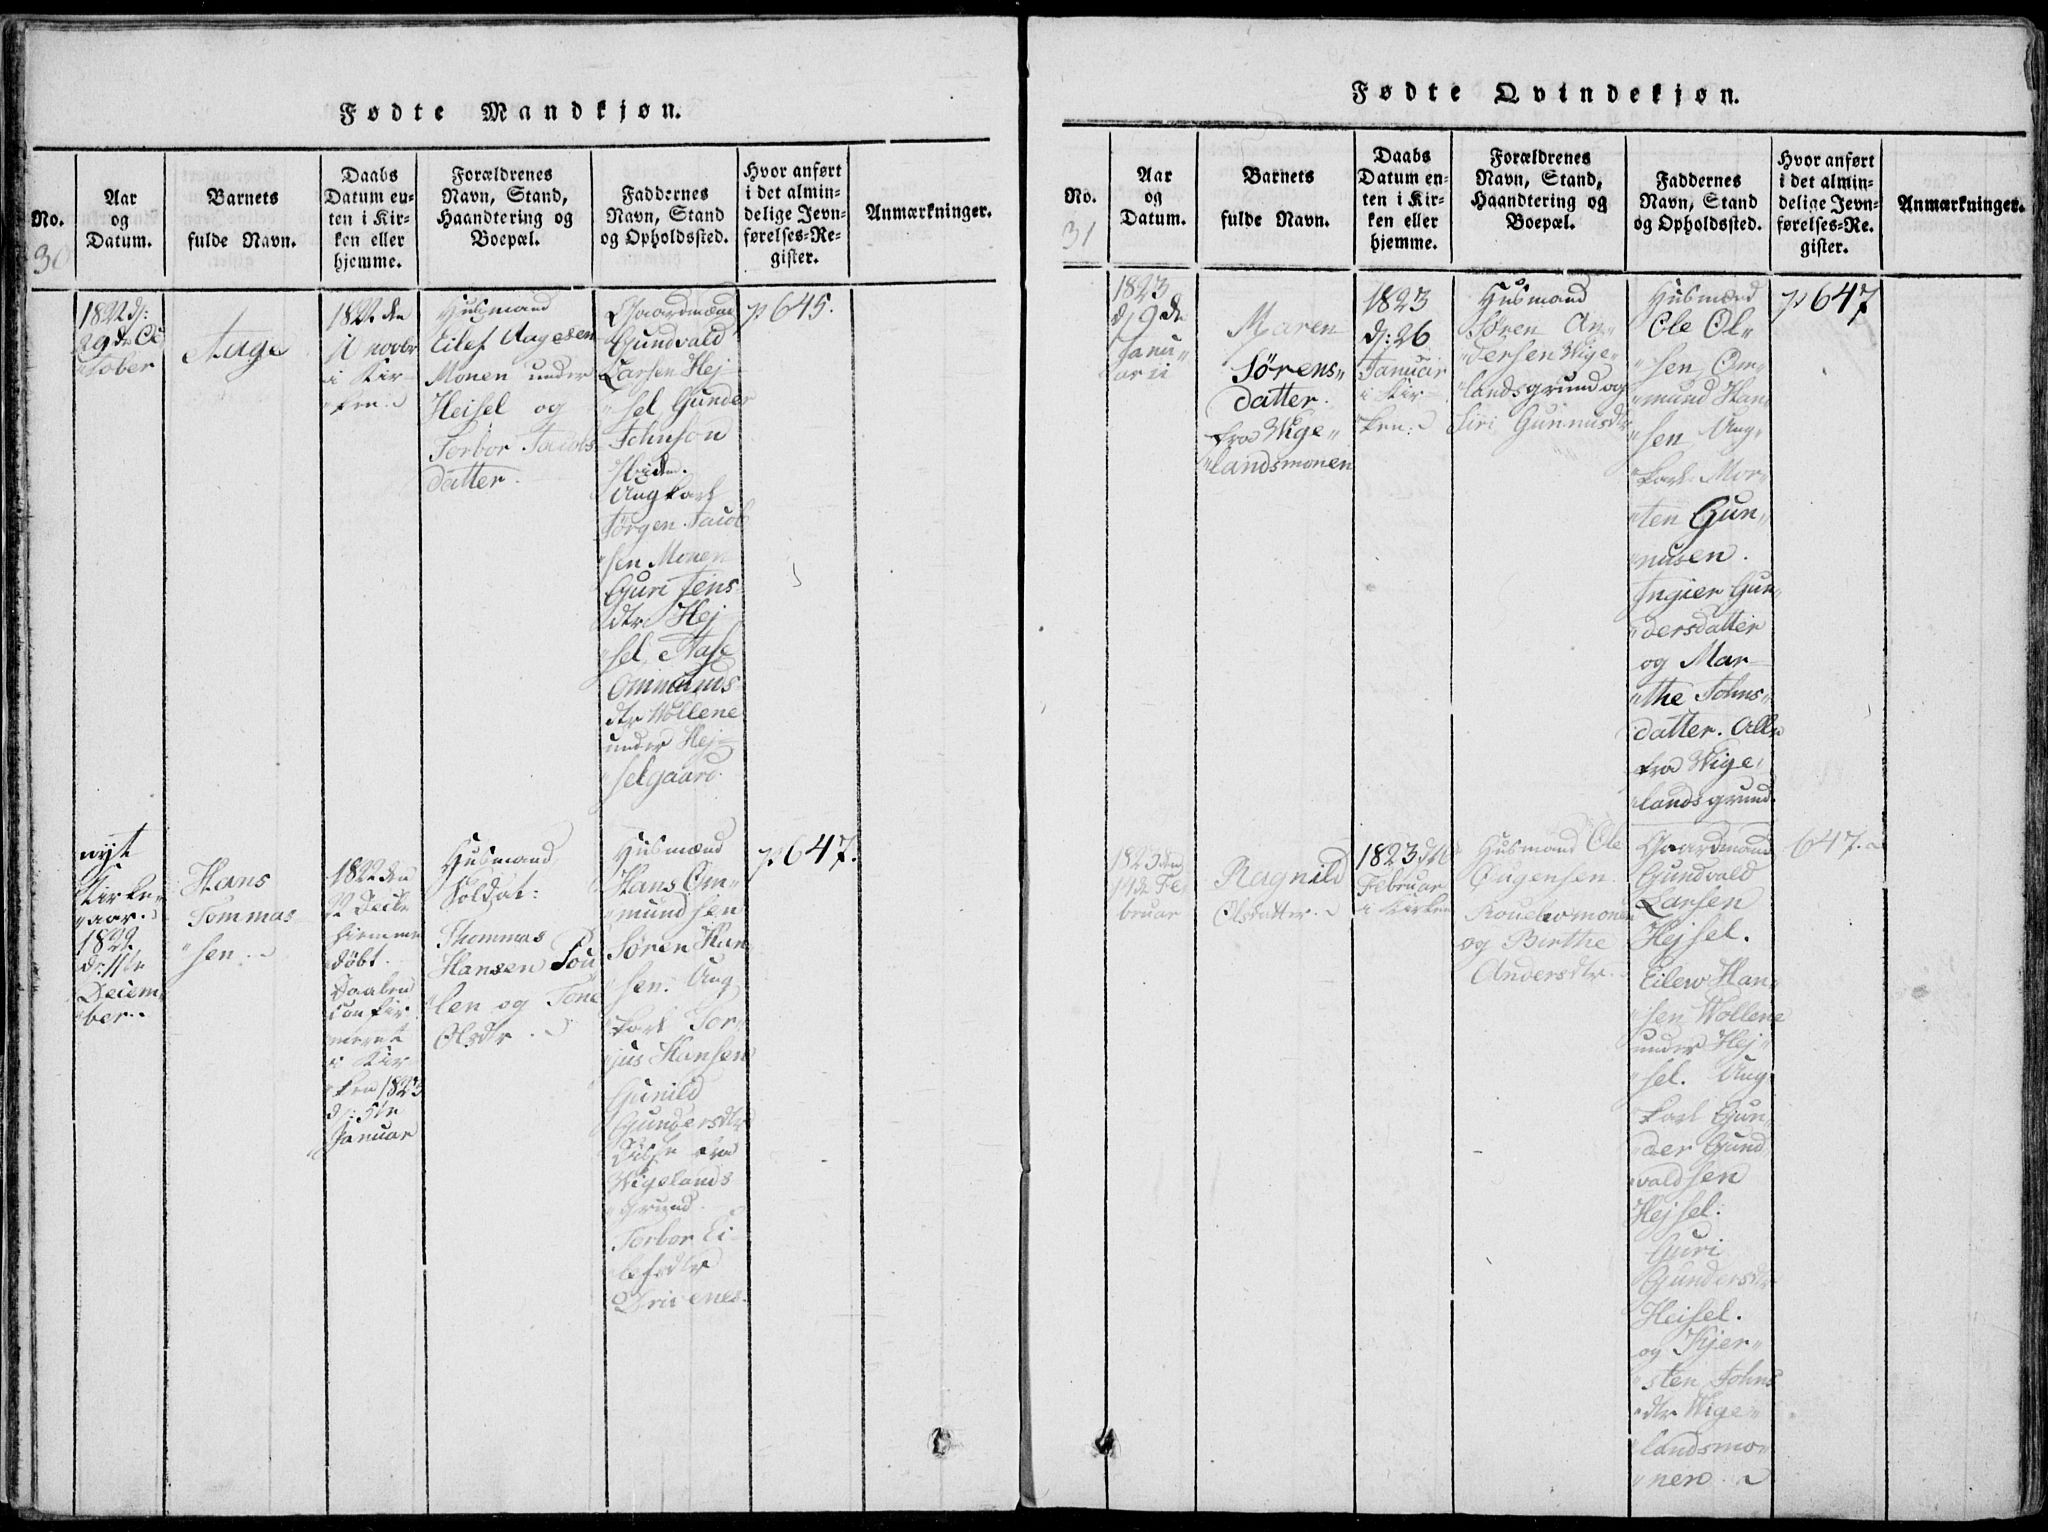 Fødte Mandkjøn.
No.
30
Aar
og
Datum.
Barnets
fulde Navn.
Daabs
Datum en-
ten i Kir-
ken eller
hjemme.
Forældrenes
Navn, Stand,
Haandtering og
Boepæl.
Faddernes
Navn, Stand
og Opholdssted.
Hvor anført
i det almin-
delige Jevn-
førelses-Re-
gister.
Anmærkninger.
1822 d:
29de Oc
tober
Aage
1822 den
novbr
i Kir-
ken.
Husmand
Eilef Aagesen
Monen under
Heisel og
Torbor Jacobs
datter.
Gaardmænd
Gundvald
Larsen Hej-
sel, Gunder
Johnson
ibidem.
Ungkarl
Jörgen Jacob
sen Monen
Guri Jens
dtr Hej
sel, Aase
Ommunds
dtr Wollene
under Hej-
selgaard.
p 645.
nyt
Kirke-
aar.
1822
d: 11te
Decem
ber.
Hans
Tommas
sen.
1822 den
Decbr
hiemme
döbt.
Daaben
confir
meret
i Kir
ken 1823
d: 5te
Januar
Husmand
Soldat:
Thommas
Hansen Pou
len og Tone
Olsdtr.
Husmænd
Hans Om-
mundsen
Søren Han
sen. Ung
karl Tor-
jus Hansen
Gunild
Gundersdtr
fra
Wigelands
grund.
Torbor Ei-
lefsdtr
Drivenes.
p 647.
Fødte Qvindekjøn.
No.
31
Aar
og
Datum.
Barnets
fulde Navn.
Daabs
Datum en-
ten i Kir-
ken eller
hjemme.
Forældrenes
Navn, Stand,
Haandtering og
Boepæl.
Faddernes
Navn, Stand
og Opholdssted.
Hvor anført
i det almin-
delige Jevn-
førelses-Re-
gister.
Anmærkninger.
1823
d 9de
Janu"
arii
Maren
Sörens"
datter.
fra Wige"
"landsmonen
1823
d: 26
Januar
i Kir
ken.
Husmand
Sören An-
"dersen Wige"
landsgrund og
Siri Gunnusdtr
Husmænd
Ole Ol"
"sen, Om"
"mund Han
"sen, Ung"
"karl Mor"
"ten Gun"
"nusen.
Ingier Gun"
"dersdatter
og Mar-
"the Johns"
datter. Alle
fra Wige"
"landsgrund.
p 647
1823 den
19de Fe
bruar
Ragnild
Olsdatter.
1823 d
Februar
i Kirken
Husmand Ole
Ougensen
monen
og Birthe
Andersdtr.
Gaardmand
Gundvald
Larsen
Hejsel.
Eilew Han"
"sen Wollene
under Hej"
"sel. Ung"
karl Gun"
"der Gund
"valdsen
Hejsel.
Guri
Gundersdtr
Heisel.
og Kjer"
"sten Johns
"dtr Wige"
"landsmo"
"nen.
647.